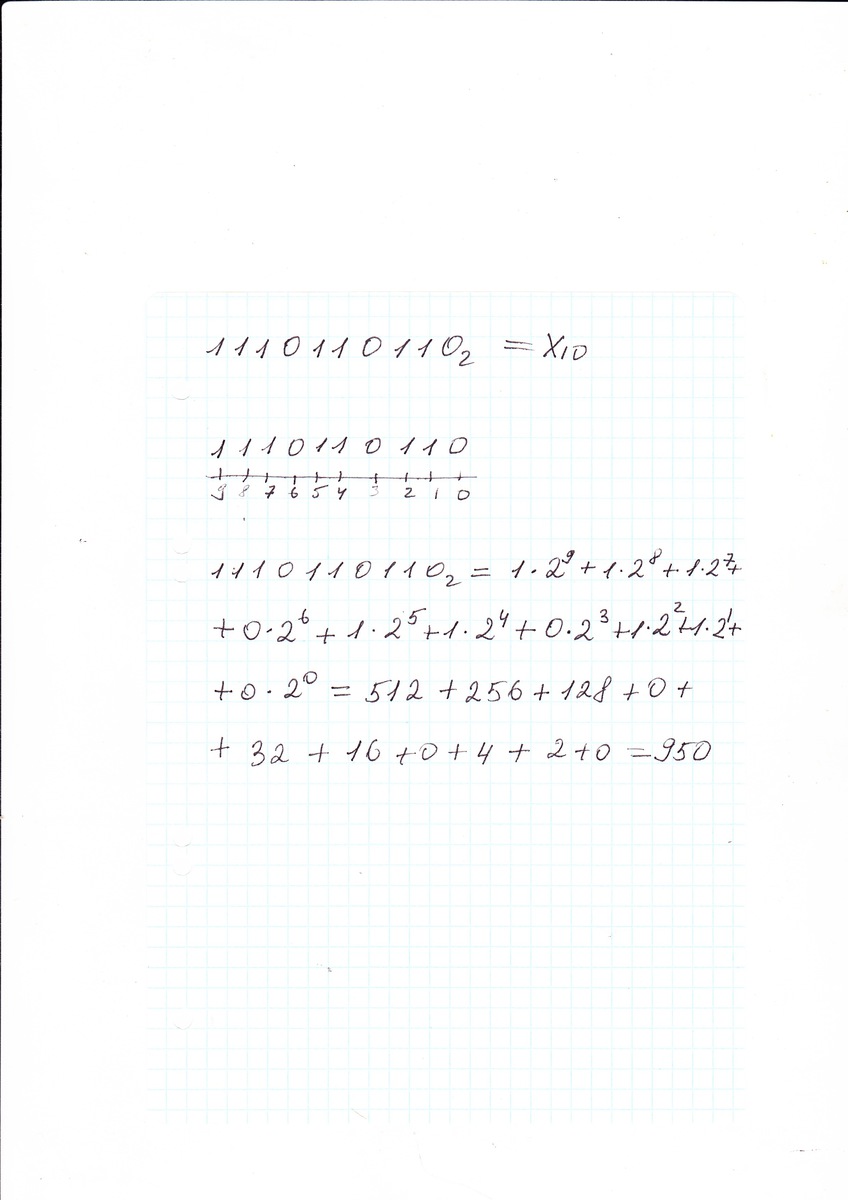 1110110110₂ = X₁₀
1110110110
9 8 7 6 5 4 3 2 1 0
1110110110₂ = 1·2⁹ + 1·2⁸ + 1·2⁷ +
+ 0·2⁶ + 1·2⁵ + 1·2⁴ + 0·2³ + 1·2² + 1·2¹ +
+ 0·2⁰ = 512 + 256 + 128 + 0 +
+ 32 + 16 + 0 + 4 + 2 + 0 = 950